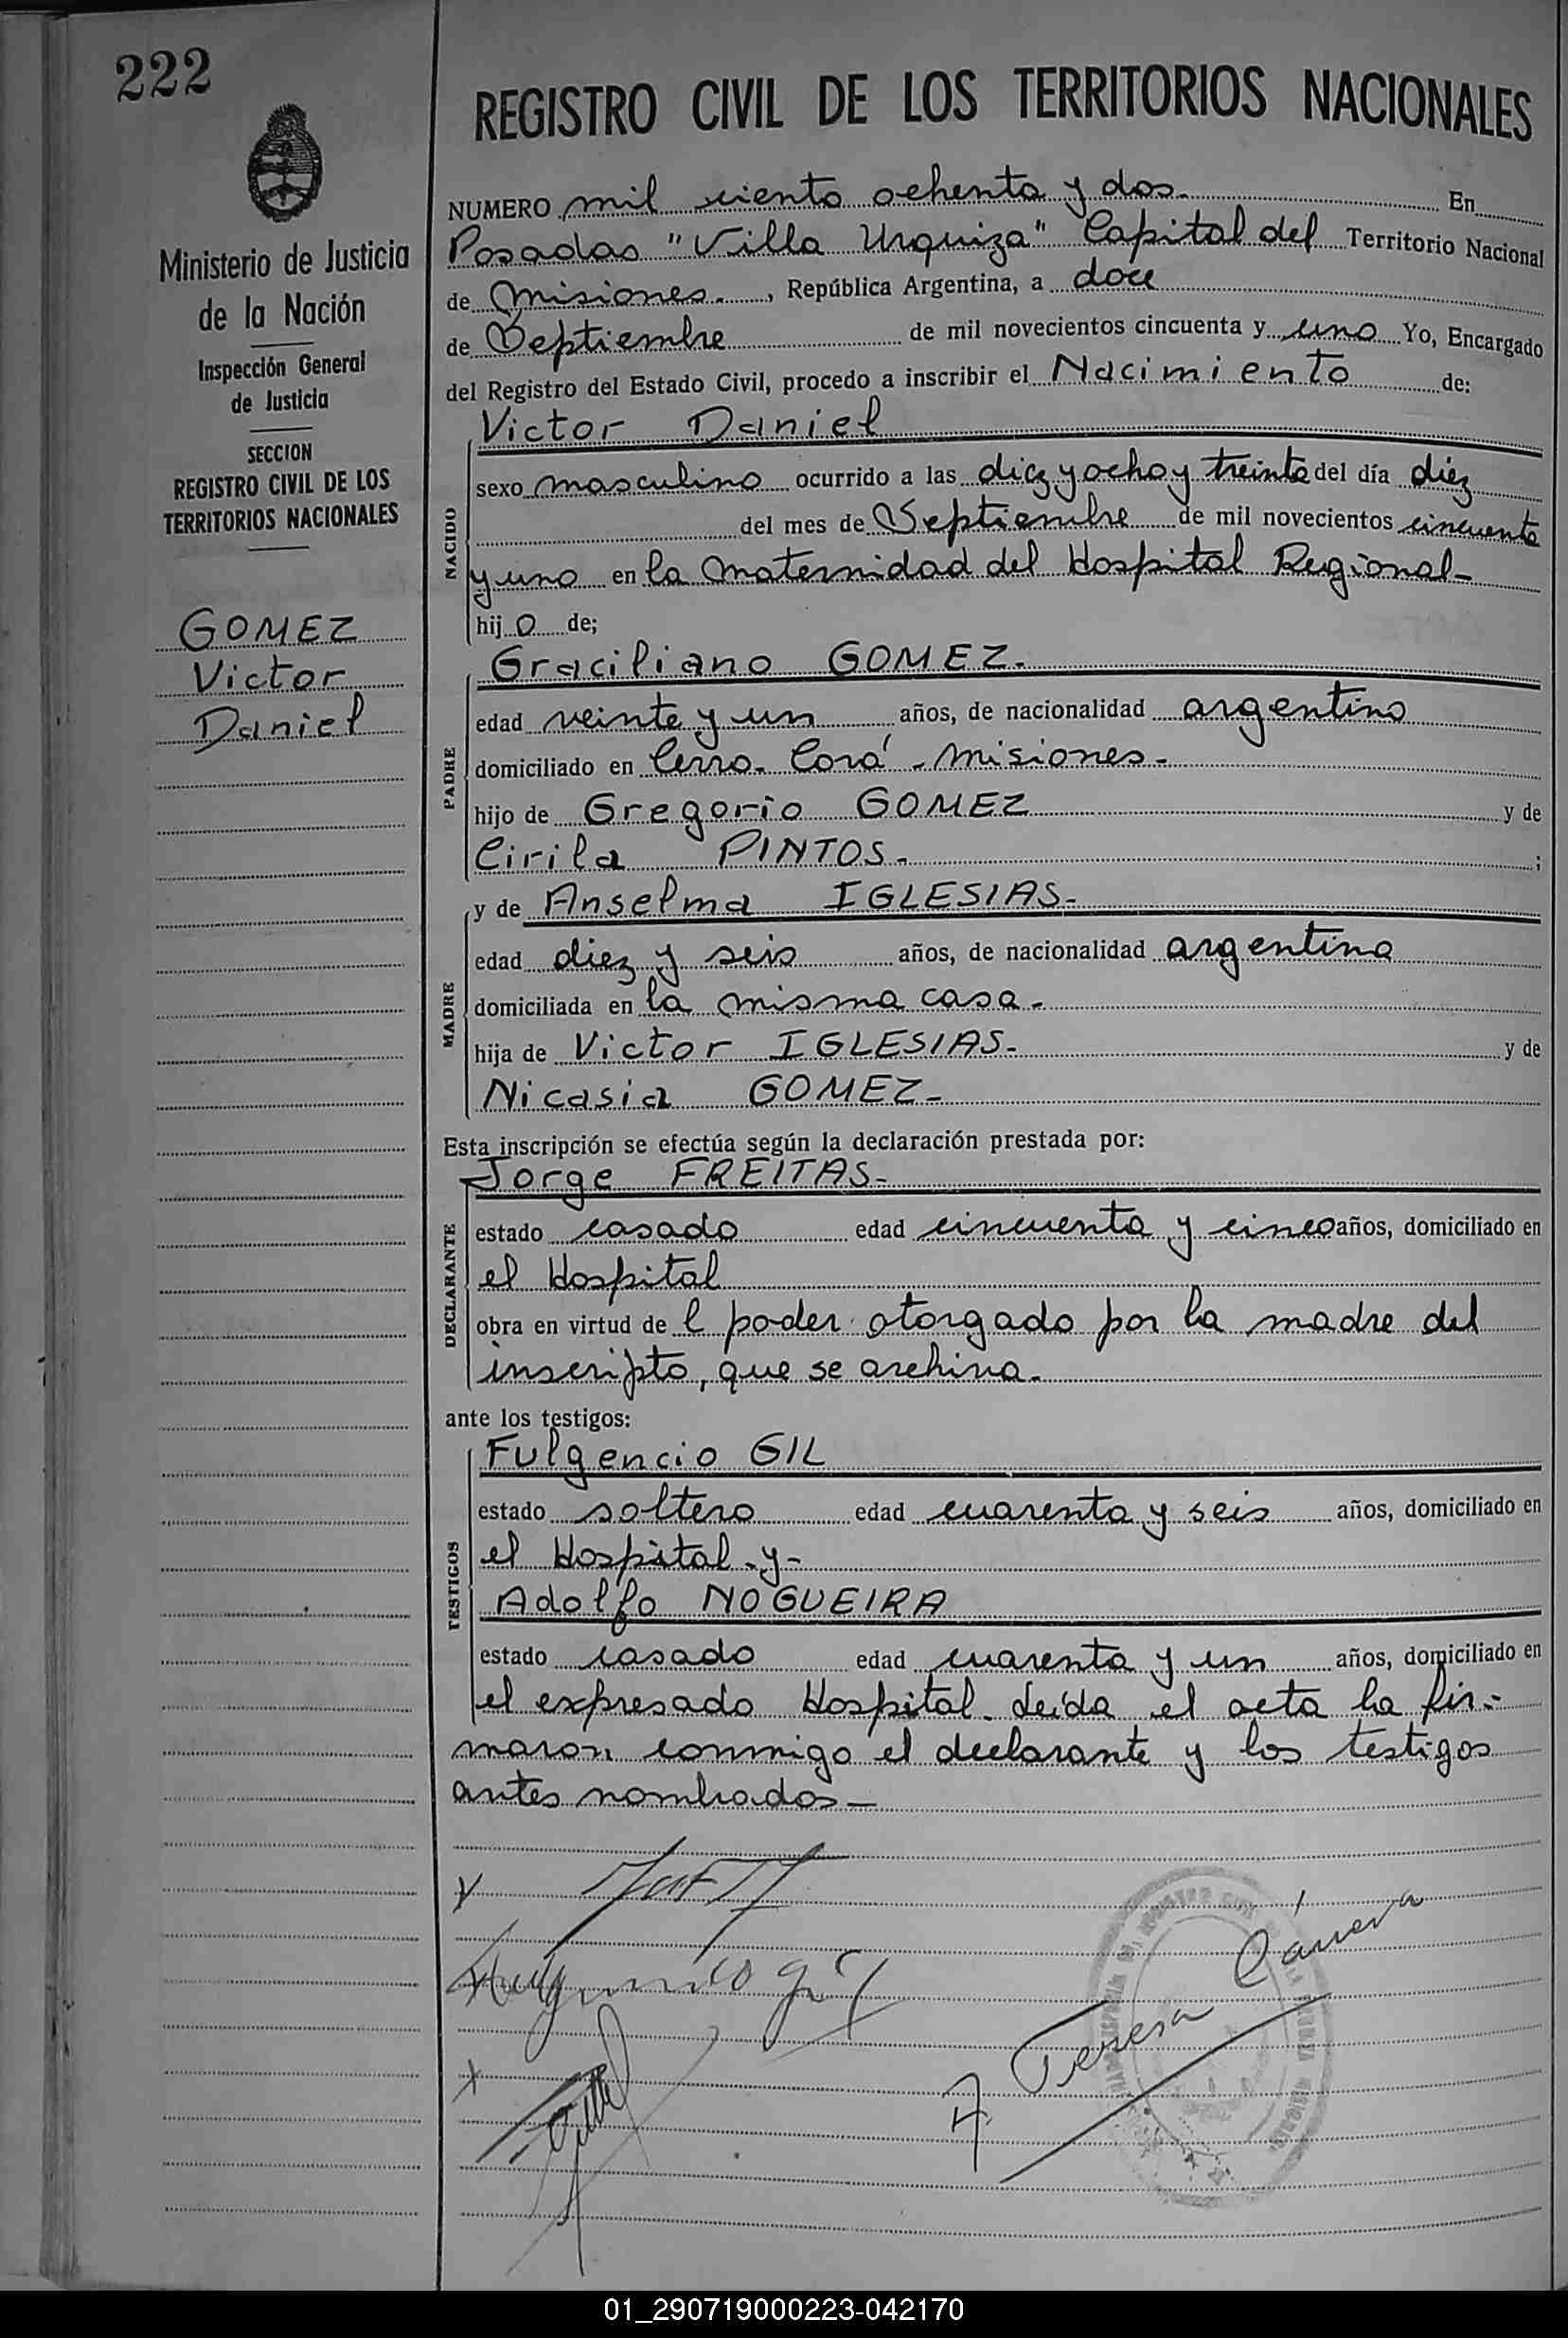 222
REGISTRO CIVIL DE LOS TERRITORIOS NACIONALES
Ministerio de Justicia
de la Nación
Inspección General
de Justicia
SECCION
REGISTRO CIVIL DE LOS
TERRITORIOS NACIONALES
GOMEZ
Victor
Daniel
NUMERO mil ciento ochenta y dos. En
Posadas "Villa Urquiza" Capital del Territorio Nacional
de Misiones. , República Argentina, a doce
de Septiembre de mil novecientos cincuenta y uno Yo, Encargado
del Registro del Estado Civil, procedo a inscribir el Nacimiento de:
Victor Daniel
NACIDO
sexo masculino ocurrido a las diez y ocho y treinta del día diez
del mes de Septiembre de mil novecientos cincuenta
y uno en la Maternidad del Hospital Regional-
hij o de;
Graciliano GOMEZ.
PADRE
edad veinte y un años, de nacionalidad argentino
domiciliado en Cerro- Corá - Misiones-
hijo de Gregorio GOMEZ y de
Cirila PINTOS. ;
y de Anselma IGLESIAS-
MADRE
edad diez y seis años, de nacionalidad argentina
domiciliada en la misma casa-
hija de Victor IGLESIAS- y de
Nicasia GOMEZ-
Esta inscripción se efectúa según la declaración prestada por:
Jorge FREITAS-
DECLARANTE
estado casado edad cincuenta y cinco años, domiciliado en
el Hospital
obra en virtud de l poder otorgado por la madre del
inscripto, que se archiva-
ante los testigos:
Fulgencio GIL
TESTIGOS
estado soltero edad cuarenta y seis años, domiciliado en
el Hospital -y-
Adolfo NOGUEIRA
estado casado edad cuarenta y un años, domiciliado en
el expresado Hospital- Leída el acta la fir-
maron conmigo el declarante y los testigos
antes nombrados-
A Teresa
01_290719000223-042170